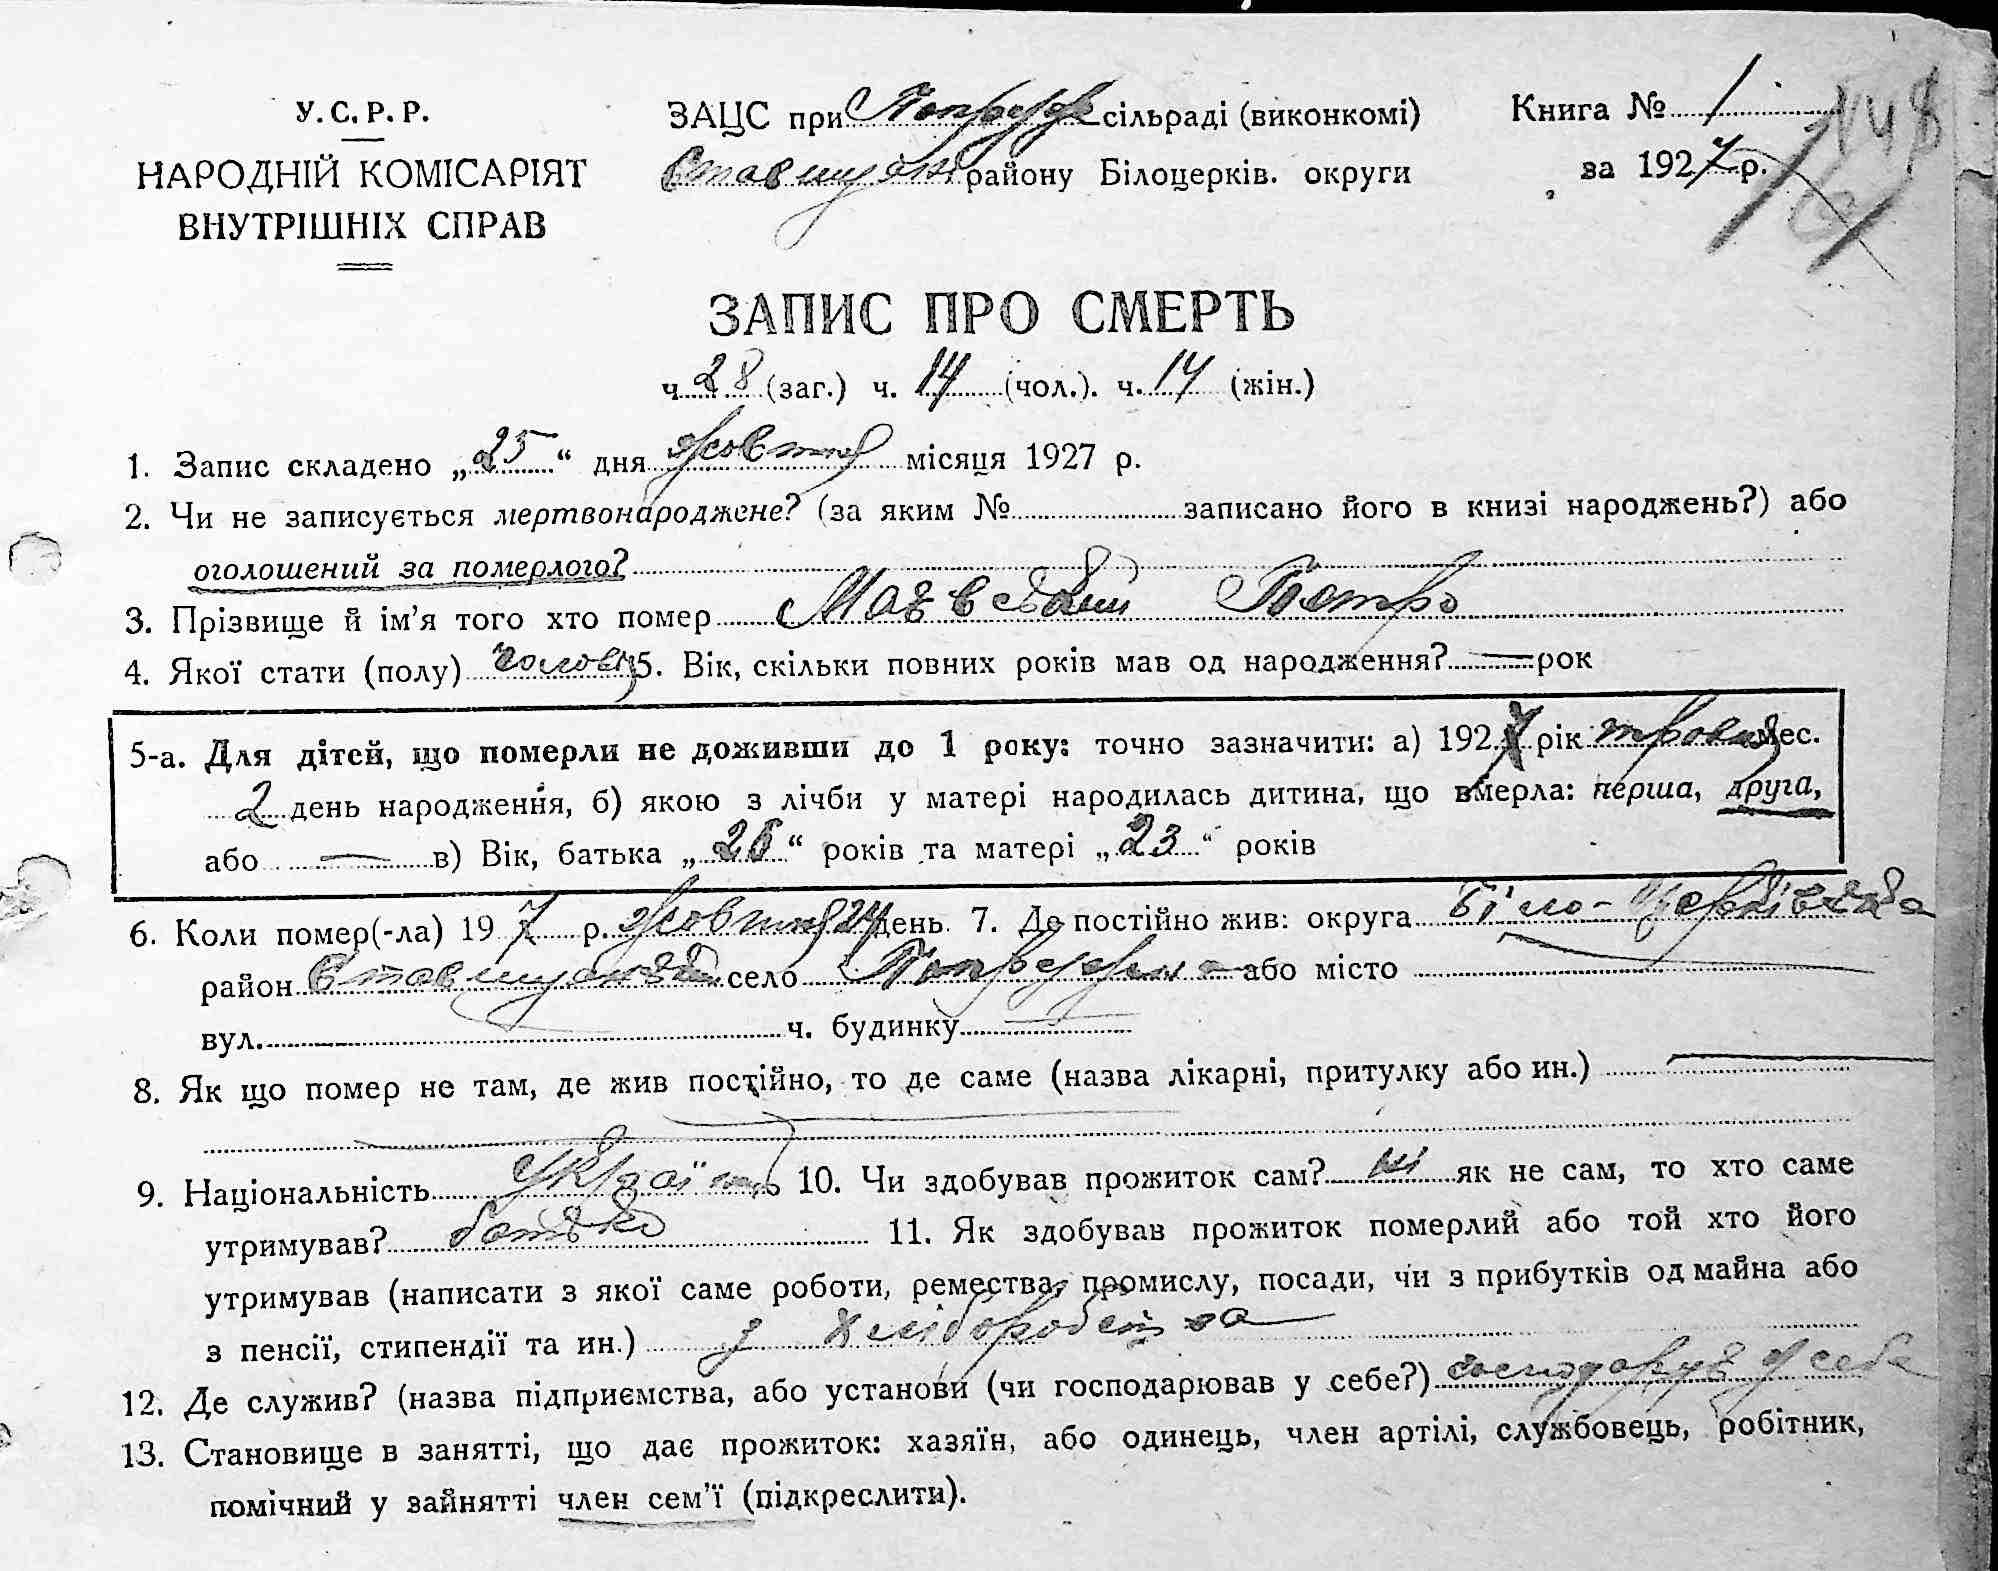 У.С.Р.Р.
НАРОДНІЙ КОМІСАРІЯТ
ВНУТРІШНІХ СПРАВ
ЗАЦС при сільраді (виконкомі)
району Білоцерків. округи
Книга № 1
за 1927 р.
148
ЗАПИС ПРО СМЕРТЬ
ч. 28 (заг.) ч. 14 (чол.). ч. 14 (жін.)
1. Запис складено „25“ дня жовтня місяця 1927 р.
2. Чи не записується мертвонароджене? (за яким № записано його в книзі народжень?) або
оголошений за померлого?
3. Прізвище й ім'я того хто помер Петро
4. Якої стати (полу) чолов 5. Вік, скільки повних років мав од народження? — рок
5-а. Для дітей, що померли не доживши до 1 року: точно зазначити: а) 1927 рік травня мес.
2 день народження, б) якою з лічби у матері народилась дитина, що вмерла: перша, друга,
або — в) Вік, батька „26“ років та матері „23“ років
6. Коли помер(-ла) 19 7 р. жовтня 24 день. 7. Де постійно жив: округа Біло-Церківська
район село або місто
вул. ч. будинку
8. Як що помер не там, де жив постійно, то де саме (назва лікарні, притулку або ин.)
9. Національність Українець 10. Чи здобував прожиток сам? ні як не сам, то хто саме
утримував? батько 11. Як здобував прожиток померлий або той хто його
утримував (написати з якої саме роботи, ремества, промислу, посади, чи з прибутків од майна або
з пенсії, стипендії та ин.) з хліборобства
12. Де служив? (назва підприємства, або установи (чи господарював у себе?) господарує у себе
13. Становище в занятті, що дає прожиток: хазяїн, або одинець, член артілі, службовець, робітник,
помічний у зайнятті член сем'ї (підкреслити).